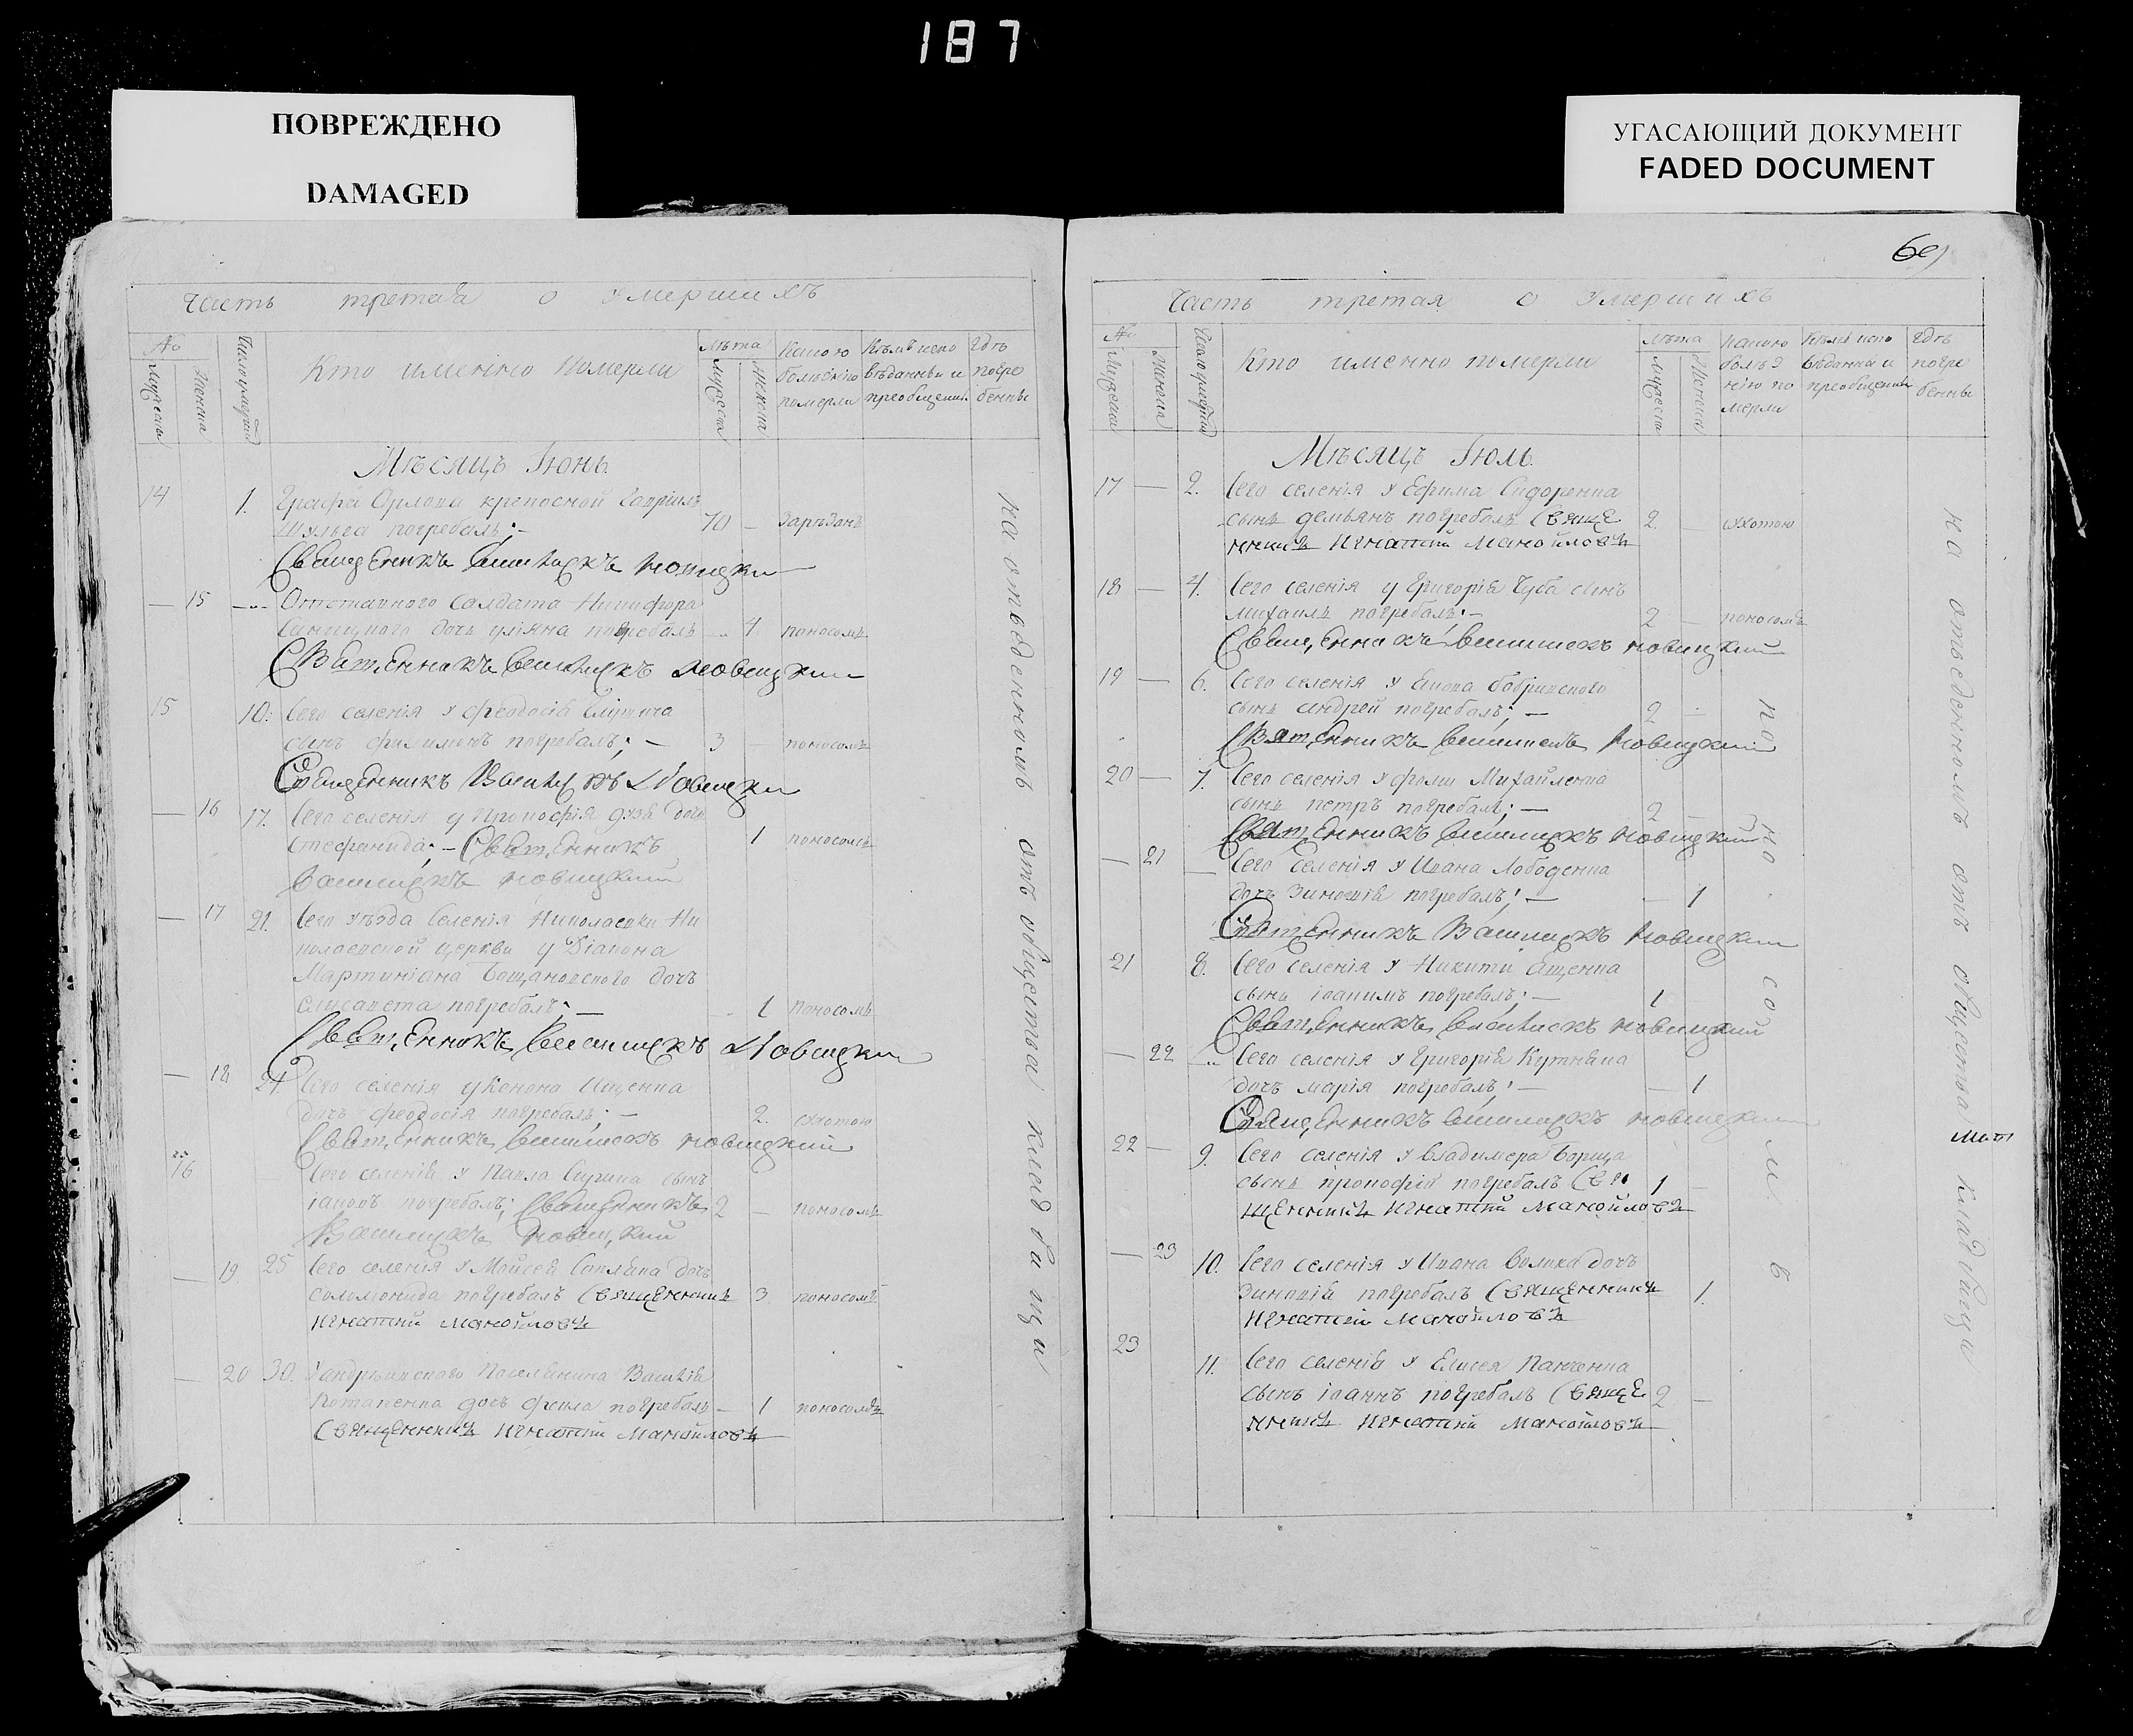 187
ПОВРЕЖДЕНО
DAMAGED
УГАСАЮЩИЙ ДОКУМЕНТ
FADED DOCUMENT
Часть третая о умершихъ
№
Кто именно померли
лѣта
Какою болѣзнію померли
Кѣмъ исповѣданны и преобщенны
Гдѣ погребенны
Мѣсяцъ Іюнь
14 1. Графа Орлова крепосной Гавріилъ
Шульга погребалъ;— 70 — зарѣзанъ
Священникъ Новицкий
— 15 —„— Отставного Солдата Никифора
дочь уліяна погребалъ — 4 поносомъ
Священникъ Новицкий
15 10. Сего селенія у Феодосія
сынъ филимонъ погребалъ; — 3 — поносомъ
Священникъ Новицкий
— 16 17. Сего селенія у Прокофія дочь
Стефанида;— Священникъ 1 поносомъ
Новицкий
— 17 21. Сего уѣзда Селенія Николаевки Ни
колаевской церкви у Діакона
Мартиніана дочь
Елисавета погребалъ; — 1 поносомъ
Священникъ Новицкий
— 18 24. Сего селенія у Конона Ищенка
дочь феодосія погребалъ; — 2. сухотою
Священникъ Новицкий
16 — Сего селенія у Павла сынъ
іаковъ погребалъ; Священникъ 2 — поносомъ
Новицкий
— 19 25 Сего селенія у Мойсея дочь
соломонида погребалъ Священникъ 3 поносомъ
Игнатий Манойловъ
— 20 30. поселянина Василія
Потапенка дочь фекла погребалъ — 1 поносомъ
Священникъ Игнатий Манойловъ
на отведенномъ отъ общества кладбищи
69
Часть третая о умершихъ
№
Кто именно померли
лѣта
какою болѣзнію померли
Кѣмъ исповѣданны и преобщенны
Гдѣ погребенны
Мѣсяцъ Іюль
17 — 2. Сего селенія у Ефима Сидоренка
сынъ демьянъ погребалъ Свяще 2 — сухотою
нникъ Игнатий Манойловъ
18 — 4. Сего селенія у Григорія Чуба сынъ
михаилъ погребалъ;— 2 — поносомъ
Священникъ Новицкий
19 — 6. Сего селенія у
сынъ андрей погребалъ; — 2 —
Священникъ Новицкий
20 — 7. Сего селенія у фомы Михайленка
сынъ петръ погребалъ; — 2 —
Священникъ Новицкий
— 21 — Сего селенія у Ивана Лободенка
дочь Зиновія погребалъ; — — 1
Священникъ Новицкий
21 8. Сего селенія у Никити
сынъ іоакимъ погребалъ; — 1
Священникъ Новицкий
— 22 —„ Сего селенія у Григорія
дочь марія погребалъ; — — 1
Священникъ Новицкий
22 — 9. Сего селенія у владимера Борща
сынъ прокофій погребалъ Свя 1 —
щенникъ Игнатий Манойловъ
— 23 10. Сего селенія у Ивана Волика дочь
Зиновія погребалъ Священникъ 1.
Игнатий Манойловъ
23 11. Сего селенія у Елисея Панченка
сынъ іоаннъ погребалъ Свяще 2 —
нникъ Игнатий Манойловъ
поносомъ
на отведенномъ отъ общества кладбищи